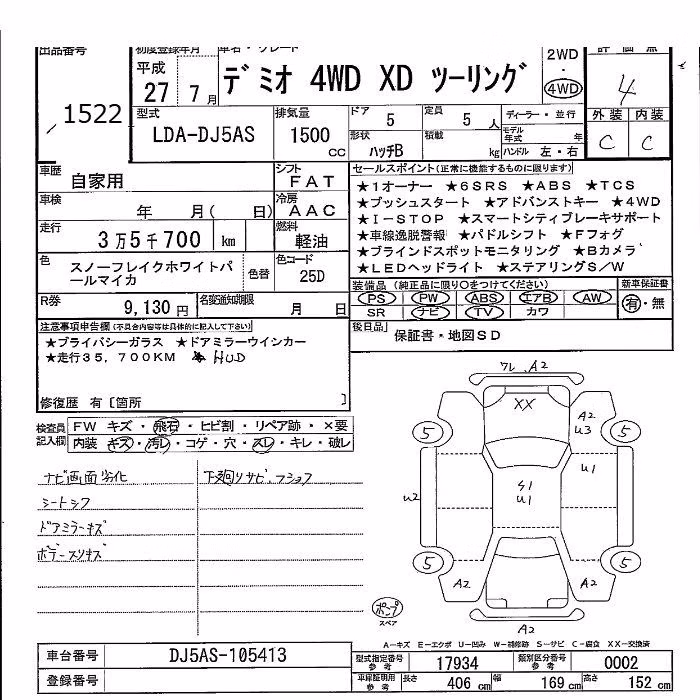 出品番号
1522
初度登録年月
平成
27 7月
車名・グレード
デミオ 4WD XD ツーリング
2WD
・
4WD
評価点
4
型式
LDA-DJ5AS
排気量
1500
CC
ドア
5
定員
5人
ディーラー・並行
外装 内装
C C
形状
ハッチB
積載
kg
モデル年式 年
ハンドル 左・右
車歴
自家用
シフト
FAT
車検
年 月( 日)
冷房
AAC
走行
3万5千700 km
燃料
軽油
色
スノーフレイクホワイトパールマイカ
色替
色コード
25D
R券
9,130円
名変通知期限
月 日
セールスポイント(正常に機能するものに限ります)
★1オーナー ★6SRS ★ABS ★TCS
★プッシュスタート ★アドバンストキー ★4WD
★I-STOP ★スマートシティブレーキサポート
★車線逸脱警報 ★パドルシフト ★Fフォグ
★ブラインドスポットモニタリング ★Bカメラ
★LEDヘッドライト ★ステアリングS/W
装備品(純正品に限り○をつけてください)
新車保証書
PS PW ABS エアB AW
SR ナビ TV カワ
有・無
後日品
保証書・地図SD
注意事項申告欄(不具合内容等は具体的に記入して下さい)
★プライバシーガラス ★ドアミラーウインカー
★走行35,700KM ★HUD
修復歴 有〔箇所 〕
検査員記入欄
FW キズ・飛石・ヒビ割・リペア跡・×要
内装 キズ・汚レ・コゲ・穴・スレ・キレ・破レ
ナビ画面劣化
下廻りサビ、フショク
シートシワ
ドアミラーキズ
ボデースリキズ
ワレ、A2
XX
A2
U3
5
5
U2
S1
U1
U1
5
5
A2
A2
A2
ポンプ
スペア
A-キズ E-エクボ U-凹み W-補修跡 S-サビ C-腐食 XX-交換済
車台番号
DJ5AS-105413
登録番号
型式指定番号 参考
17934
類別区分番号 参考
0002
車庫証明用 参考
長さ 406 cm
幅 169 cm
高さ 152 cm